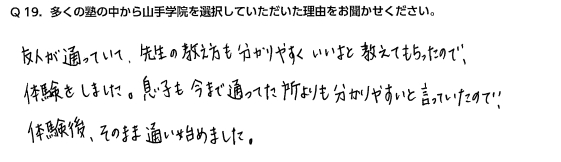 Q 19. 多くの塾の中から山手学院を選択していただいた理由をお聞かせください。
友人が通っていて、先生の教え方も分かりやすくいいよと教えてもらったので、
体験をしました。息子も今まで通ってた所よりも分かりやすいと言っていたので、
体験後、そのまま通い始めました。